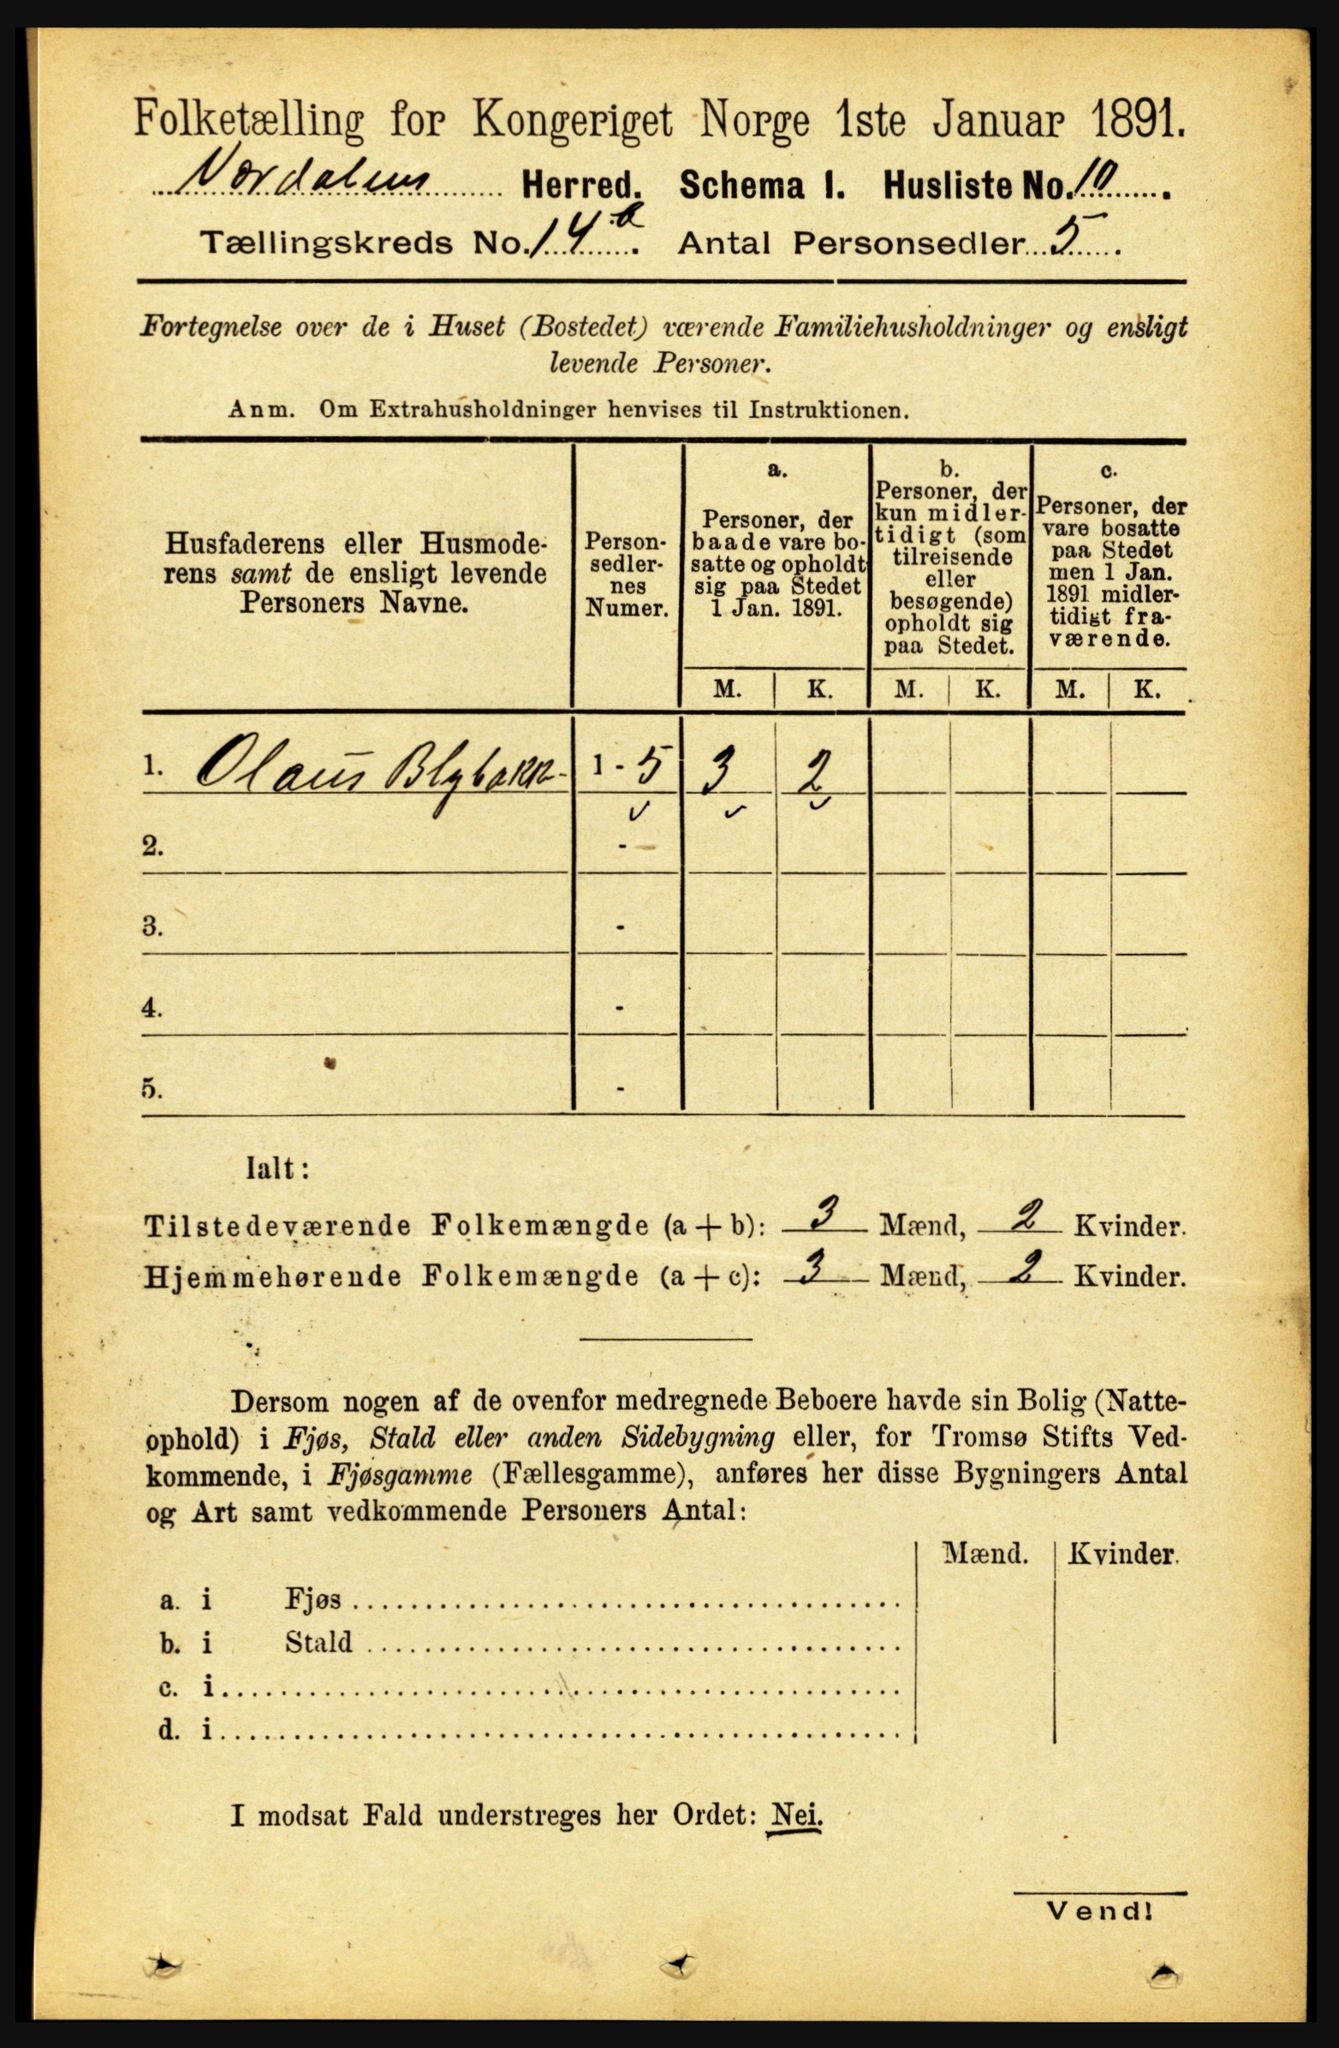 Folketælling for Kongeriget Norge 1ste Januar 1891.
Nordalens Herred. Schema 1. Husliste No. 10.
Tællingskreds No. 14 a. Antal Personsedler 5.
Fortegnelse over de i Huset (Bostedet) værende Familiehusholdninger og ensligt
levende Personer.
Anm. Om Extrahusholdninger henvises til Instruktionen.
Husfaderens eller Husmode-
rens samt de ensligt levende
Personers Navne.
Person-
sedler-
nes
Numer.
a.
Personer, der
baade vare bo-
satte og opholdt
sig paa Stedet
1 Jan. 1891.
b.
Personer, der
kun midler-
tidigt (som
tilreisende
eller
besøgende)
opholdt sig
paa Stedet.
c.
Personer, der
vare bosatte
paa Stedet
men 1 Jan.
1891 midler-
tidigt fra-
værende.
M. K. M. K. M. K.
1. Olaus Blybakk 1 - 5 3 2
2. -
3. -
4. -
5. -
Ialt:
Tilstedeværende Folkemængde (a + b): 3 Mænd, 2 Kvinder.
Hjemmehørende Folkemængde (a + c): 3 Mænd, 2 Kvinder.
Dersom nogen af de ovenfor medregnede Beboere havde sin Bolig (Natte-
ophold) i Fjøs, Stald eller anden Sidebygning eller, for Tromsø Stifts Ved-
kommende, i Fjøsgamme (Fællesgamme), anføres her disse Bygningers Antal
og Art samt vedkommende Personers Antal:
Mænd. Kvinder.
a. i Fjøs
b. i Stald
c. i
d. i
I modsat Fald understreges her Ordet: Nei.
Vend!